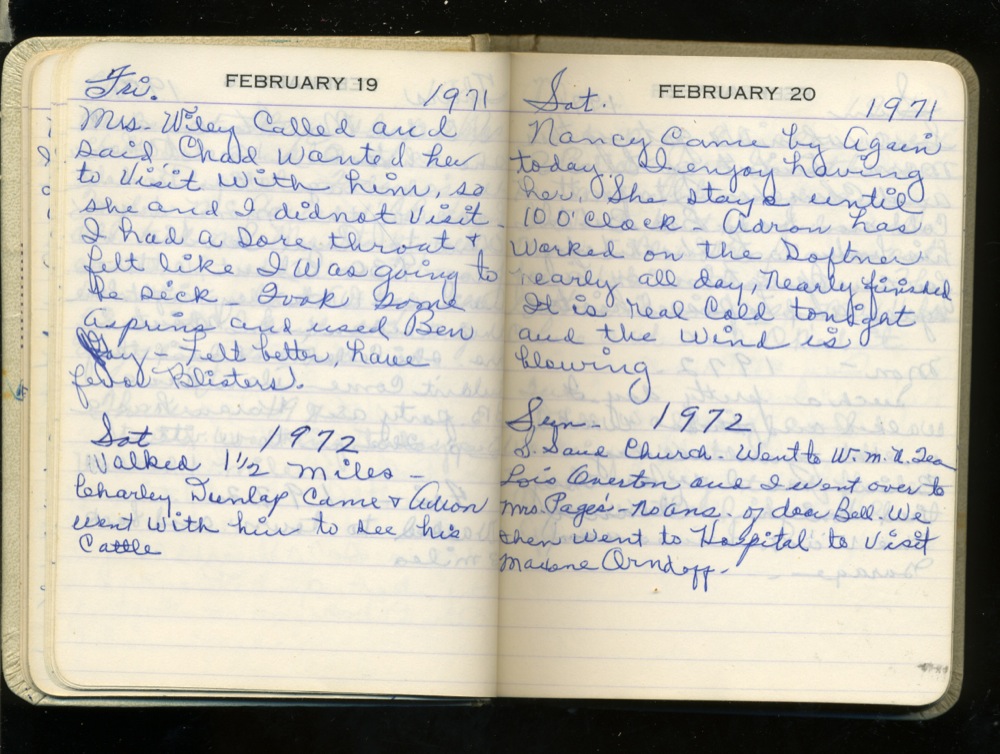 Fri. FEBRUARY 19 1971
Mrs. Wiley Called and
said Chad wanted her
to visit with him, so
she and I didnot visit.
I had a sore throat +
felt like I was going to
be sick - Took some
asprins and used Ben
Gay - Felt better, have
fever Blisters.
Sat 1972
Walked 1 1/2 miles -
Charley Dunlap Came + Adron
went with him to see his
Cattle
Sat. FEBRUARY 20 1971
Nancy Came by Again
today. I enjoy having
her. She stays until
10 O'Clock - Adron has
worked on the Softner
nearly all day, nearly finished
It is real Cold tonight
and the wind is
blowing
Sun- 1972
S. S. and Church - Went to W. M. U. Tea
Lois Overton and I went over to
Mrs. Page's - No ans. of door Bell. We
then went to Hospital to visit
Maxone Orndoff -